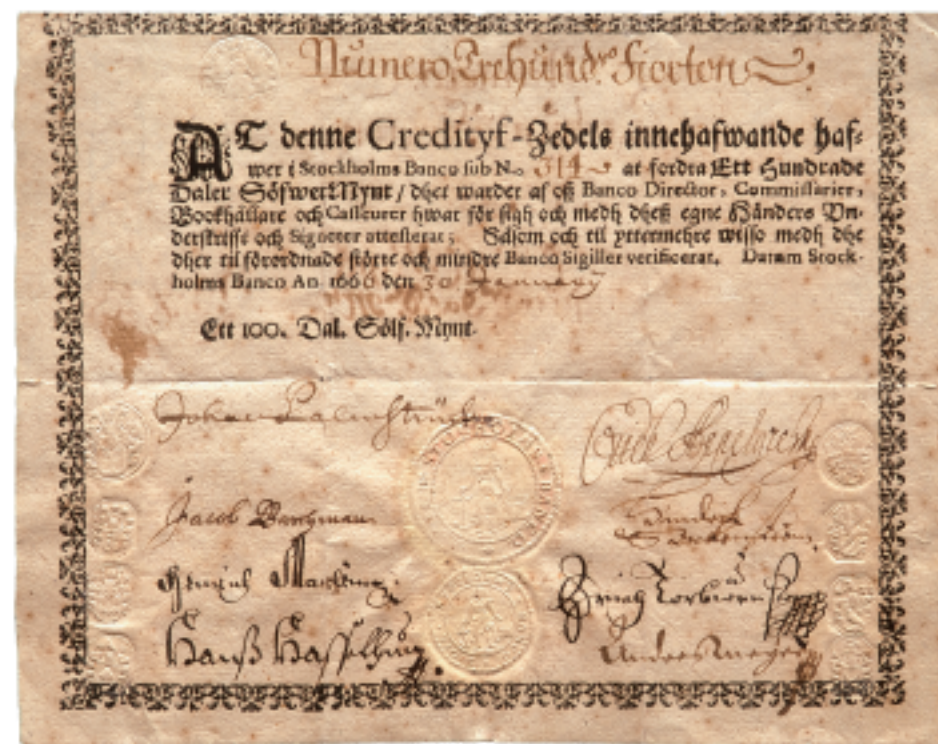 Numero, Trehundr. Fiorton
AT denne Credityf-Zedels innehafwande haf-
wer i Stockholms Banco sub N.o 314 at fordra Ett Hundrade
Daler SölfwerMynt / dhet warder af oß Banco Director, Commissarier,
Bookhållare och Casseurer hwar för sigh och medh dheß egne Händers Vn-
derskriffe och Signeter attesterat; Såsom och til yttermehre wisso medh dhe
dher til förordnade större och mindre Banco Sigiller verificerat. Datum Stock-
holms Banco An. 1666 den 30 January
Ett 100. Dal. Sölf. Mynt.
Johan Palmstruch
Jacob
Hanß
Anders Meyer